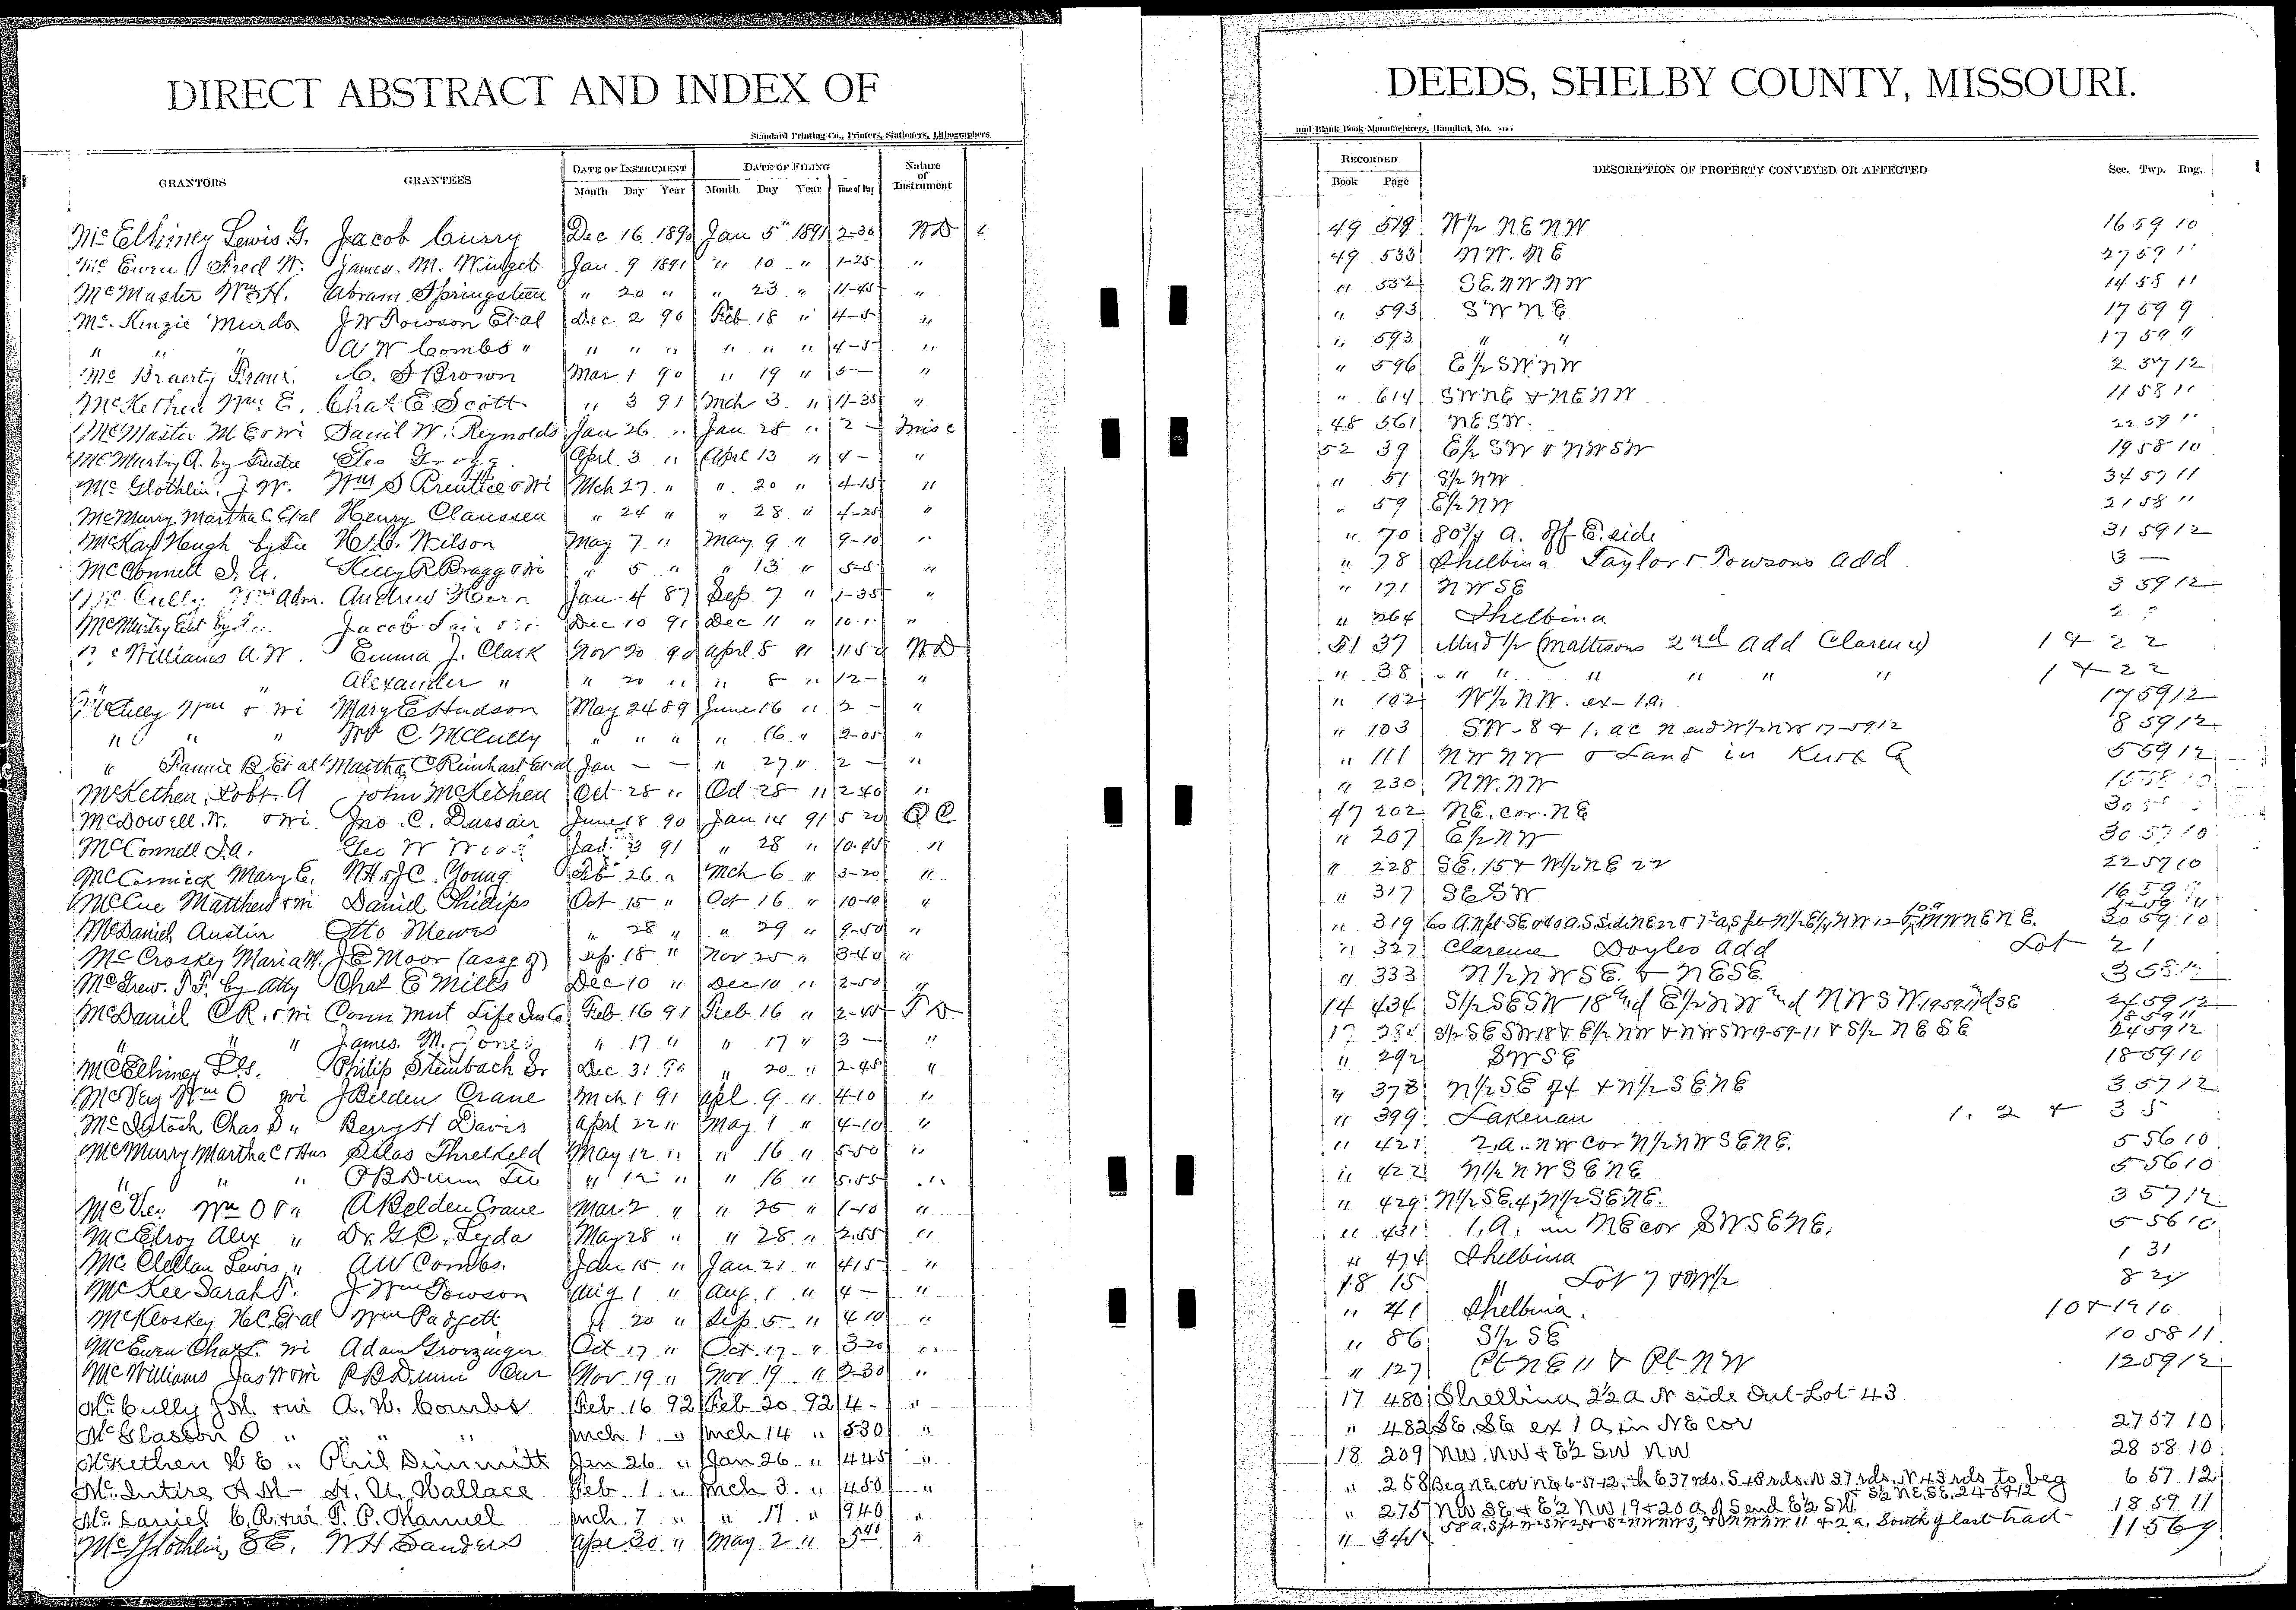 DIRECT ABSTRACT AND INDEX OF
Standard Printing Co., Printers, Stationers, Lithographers
GRANTORS GRANTEES DATE OF INSTRUMENT DATE OF FILING Nature of Instrument
Month Day Year Month Day Year Time of Day
McElhiney Lewis G. Jacob Curry Dec 16 1890 Jan 5 1891 2-30 WD
McEwen Fred W. James. M. Winget Jan. 9 1891 " 10 " 1-25 "
McMaster Wm H. Abram Springsteen " 20 " " 23 " 11-45 "
Mc. Kenzie Murdo J W Towson Et al Dec 2 90 Feb 18 " 4-5 "
" " " A W Combs " " " " " " " 4-5 "
Mc Braerty Frank C. S Brown Mar 1 90 " 19 " 5- "
McKethen Wm E. Chas E Scott " 3 91 Mch 3 " 11-35 "
McMaster M E & Wi W. Reynolds Jan 26 " Jan 28 " 2 - Misc
McMurtry A. by Trustee Geo April 3 " April 13 " 4 - "
McGlothlin, J. W. Wm S Prentice & Wi Mch 27 " " 20 " 4-15 "
McMurry Martha C Et al Henry Claussen " 24 " " 28 " 4-25 "
McKay Hugh by Tee H. C. Wilson May 7 " May 9 " 9-10 "
McConnell I. A. R Bragg & Wi " 5 " " 13 " 5-5 "
McCully Wm Adm. Andrew Hearn Jan 4 87 Sep 7 " 1-35 "
McMurtry by Jacob Dec 10 91 Dec 11 " "
McWilliams A. W. Emma J. Clark Nov 20 90 April 8 91 11 50 WD
" " Alexander " " 20 " " 8 " 12- "
McCully Wm & Wi Mary E Hudson May 24 89 June 16 " 2 - "
" " " C McCully " " " " 16 " 2-05 "
" Fannie B. Et al Martha C Rinehart Et al Jan - - " 27 " 2 - "
McKethen, Robt. A John McKethen Oct 28 " Oct 28 " 2 40 "
McDowell. W. & Wi Jno. C. Dussair June 18 90 Jan 14 91 5 20 Q C
McConnell I. A. Geo W Wood Jan 3 91 " 28 " 10.45 "
McCormick Mary E. N H & J C. Young Feb 26 " Mch 6 " 3-20 "
McCue Matthew & Wi Daniel Phillips Oct 15 " Oct 16 " 10-10 "
McDaniel Austin Otto Mewes " 28 " " 29 " 9-50 "
McCroskey Maria M. J E Moor (assg of) Sep. 18 " Nov 25 " 3-40 "
McGrew. I F. by Atty Chas E Mills Dec 10 " Dec 10 " 2-50 "
McDaniel C R. & Wi Conn Mut Life Ins Co Feb. 16 91 Feb 16 " 2-45 T D
" " " James. M. Jones " 17 " " 17 " 3 - "
McElhiney L. G. Philip Steinbach Sr Dec. 31 90 " 20 " 2-45 "
McVey Wm O Wi J Belden Crane Mch 1 91 Apl. 9 " 4-10 "
McIntosh Chas D " Berry H Davis April 22 " May 1 " 4-10 "
McMurry Martha C & Hus Silas Threlkeld May 12 " " 16 " 5-50 "
" " " P B Dunn Tee " 12 " " 16 " 5.55 "
McVey Wm O & " A Belden Crane Mar. 2 " " 25 " 1-10 "
McElroy Alex " Dr. G. C. Lyda May 28 " " 28 " 2.55 "
McClellan Lewis " A W Combs. Jan 15 " Jan. 21 " 4 15 "
McKee Sarah T. J Wm Towson Aug 1 " Aug. 1 " 4 - "
McKloskey H C. Et al Wm Padgett " 20 " Sep. 5 " 4 10 "
McEwen Chas L. Wi Adam Groezinger Oct 17 " Oct. 17 " 3-20 "
McWilliams Jas W & Wi P B Dunn Cur Nov. 19 " Nov. 19 " 2-30 "
McCully J M. & wi A. W. Combs Feb 16 92 Feb 20 92 4 - "
McGlasson O " " " Mch 1 " Mch 14 " 5 30 "
McKethen W E " Phil Dimmitt Jan 26 " Jan 26 " 4 45 "
Mc. Intire A M - H. U. Wallace Feb 1 " Mch 3 " 4 50 "
Mc. Daniel C. R. & wi T. P. Manuel Mch 7 " " 17 " 9 40 "
McGlothlin, S E. W H Sanders Apr 30 " May 2 " 5 40 "
DEEDS, SHELBY COUNTY, MISSOURI.
and Blank Book Manufacturers, Hannibal, Mo.
RECORDED DESCRIPTION OF PROPERTY CONVEYED OR AFFECTED Sec. Twp. Rng.
Book Page
49 519 W1/2 NE NW 16 59 10
49 533 NW. NE 27 59 11
" 552 SE. NW NW 14 58 11
" 593 SW NE 17 59 9
" 593 " " 17 59 9
" 596 E1/2 SW. NW 2 57 12
" 614 SW NE & NE NW 11 58 11
48 561 NE SW. 22 59 11
52 39 E1/2 SW & NW SW 19 58 10
" 51 S1/2 NW 34 57 11
" 59 E1/2 NW 21 58 11
" 70 80 3/4 a. off E. side 31 59 12
" 78 Shelbina Taylor & Towsons Add 3 -
" 171 NW SE 3 59 12
" 264 Shelbina 2
51 37 Und 1/2 (Mattesons 2nd Add Clarence) 1 & 2 2
" 38 " " " " " " 1 & 2 2
" 102 W1/2 NW. ex - 1 a. 17 59 12
" 103 SW - 8 & 1. ac N end W1/2 NW 17-59 12 8 59 12
" 111 NW NW & Land in Knox Co 5 59 12
" 230 NW. NW 15 58 10
47 202 NE. cor. NE 30
" 207 E1/2 NW 30 57 10
" 228 SE. 15 & W1/2 NE 22 22 57 10
" 317 SE SW 16 59
" 319 60 A. N pt SE & 40 a. S. side NE 22 20 59 10
" 327 Clarence Doyles Add Lot 2 1
" 333 N1/2 NW SE. & NE SE 3 58 12
14 434 S1/2 SE SW 18 and E1/2 NW and NW SW. 19 59 11 24 59 12
18 59 11
17 284 S1/2 SE SW 18 & E1/2 NW & NW SW 19-59-11 & S1/2 NE SE 24 59 12
" 292 SW SE 18 59 10
" 378 N1/2 SE of 4 & N1/2 SE NE 3 57 12
" 399 Lakenan 1. 2 & 3 5
" 421 2. A. NW Cor N1/2 NW SE NE. 5 56 10
" 422 N1/2 NW SE NE 5 56 10
" 429 N1/2 SE, 4, N1/2 SE NE. 3 57 12
" 431 1. A. in NE cor SW SE NE. 5 56 10
" 474 Shelbina 1 31
18 15 " Lot 7 & W1/2 8 24
" 41 Shelbina. 10 & 19 10
" 86 S1/2 SE 10 58 11
" 127 Pt NE 11 & Pt NW 12 59 12
17 480 Shelbina 2 1/2 a N side Out-Lot-43
" 482 SE. SE ex 1 a, in NE cor 27 57 10
18 209 NW. NW & E1/2 SW NW 28 58 10
" 258 Beg NE cor NE 6-57-12, th E 37 rds. S 43 rds. W 37 rds. N 43 rds to beg 6 57 12
& S1/2 NE. SE. 24-59-12
" 275 NW SE & E1/2 NW 19 & 20 a. of S end E1/2 SW 18 59 11
" 341 & 2 a. South of last tract 11 56 9